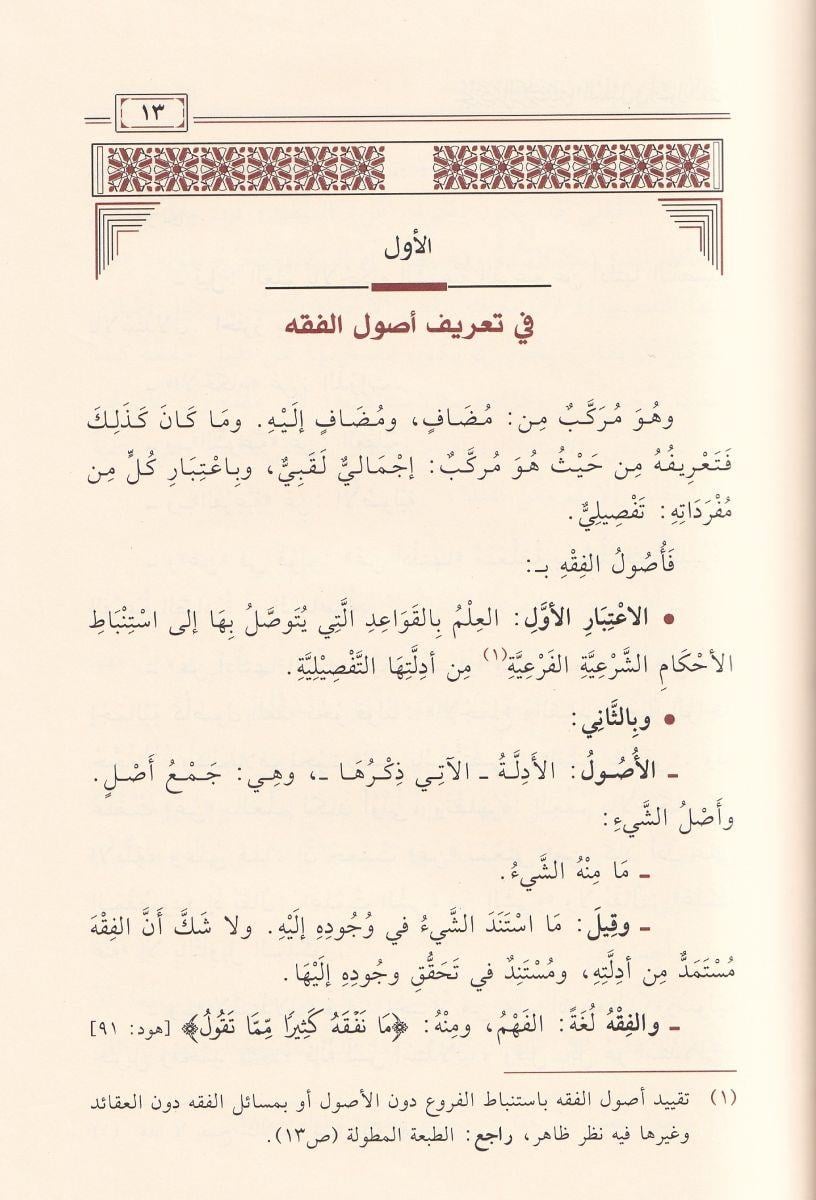 ١٣
الأول
في تعريف أصول الفقه
وهُوَ مُرَكَّبٌ مِن: مُضَافٍ، ومُضَافٍ إلَيْهِ. ومَا كَانَ كَذَلِكَ
فَتَعْرِيفُهُ مِن حَيْثُ هُوَ مُركَّبٌ: إجْمَاليٌّ لَقَبِيٌّ، وبِاعْتِبَارِ كُلٍّ مِن
مُفْرَدَاتِهِ: تَفْصِيلِيٌّ.
فَأُصُولُ الفِقْهِ بـ:
• الاعْتِبَارِ الأوَّلِ: العِلْمُ بِالقَوَاعِدِ الَّتِي يُتَوصَّلُ بِهَا إلى اسْتِنْبَاطِ
الأحْكَامِ الشَّرْعِيَّةِ الفَرْعِيَّةِ(١) مِن أدِلَّتِهَا التَّفْصِيْلِيَّةِ.
• وبِالثَّانِي:
ـ الأُصُولُ: الأَدِلَّةُ ـ الآتِي ذِكْرُهَا ـ، وهِيَ: جَمْعُ أَصْلٍ.
وأَصْلُ الشَّيءِ:
ـ مَا مِنْهُ الشَّيءُ.
ـ وقِيلَ: مَا اسْتَنَدَ الشَّيءُ في وُجُودِهِ إلَيْهِ. ولا شَكَّ أَنَّ الفِقْهَ
مُسْتَمَدٌّ مِن أدِلَّتِهِ، ومُسْتَنِدٌ في تَحَقُّقِ وجُودِهِ إلَيْهَا.
ـ والفِقْهُ لُغَةً: الفَهْمُ، ومِنْهُ: ﴿مَا نَفْقَهُ كَثِيرًا مِّمَّا تَقُولُ﴾ [هود: ٩١]
(١) تقييد أصول الفقه باستنباط الفروع دون الأصول أو بمسائل الفقه دون العقائد
وغيرها فيه نظر ظاهر، راجع: الطبعة المطولة (ص١٣).